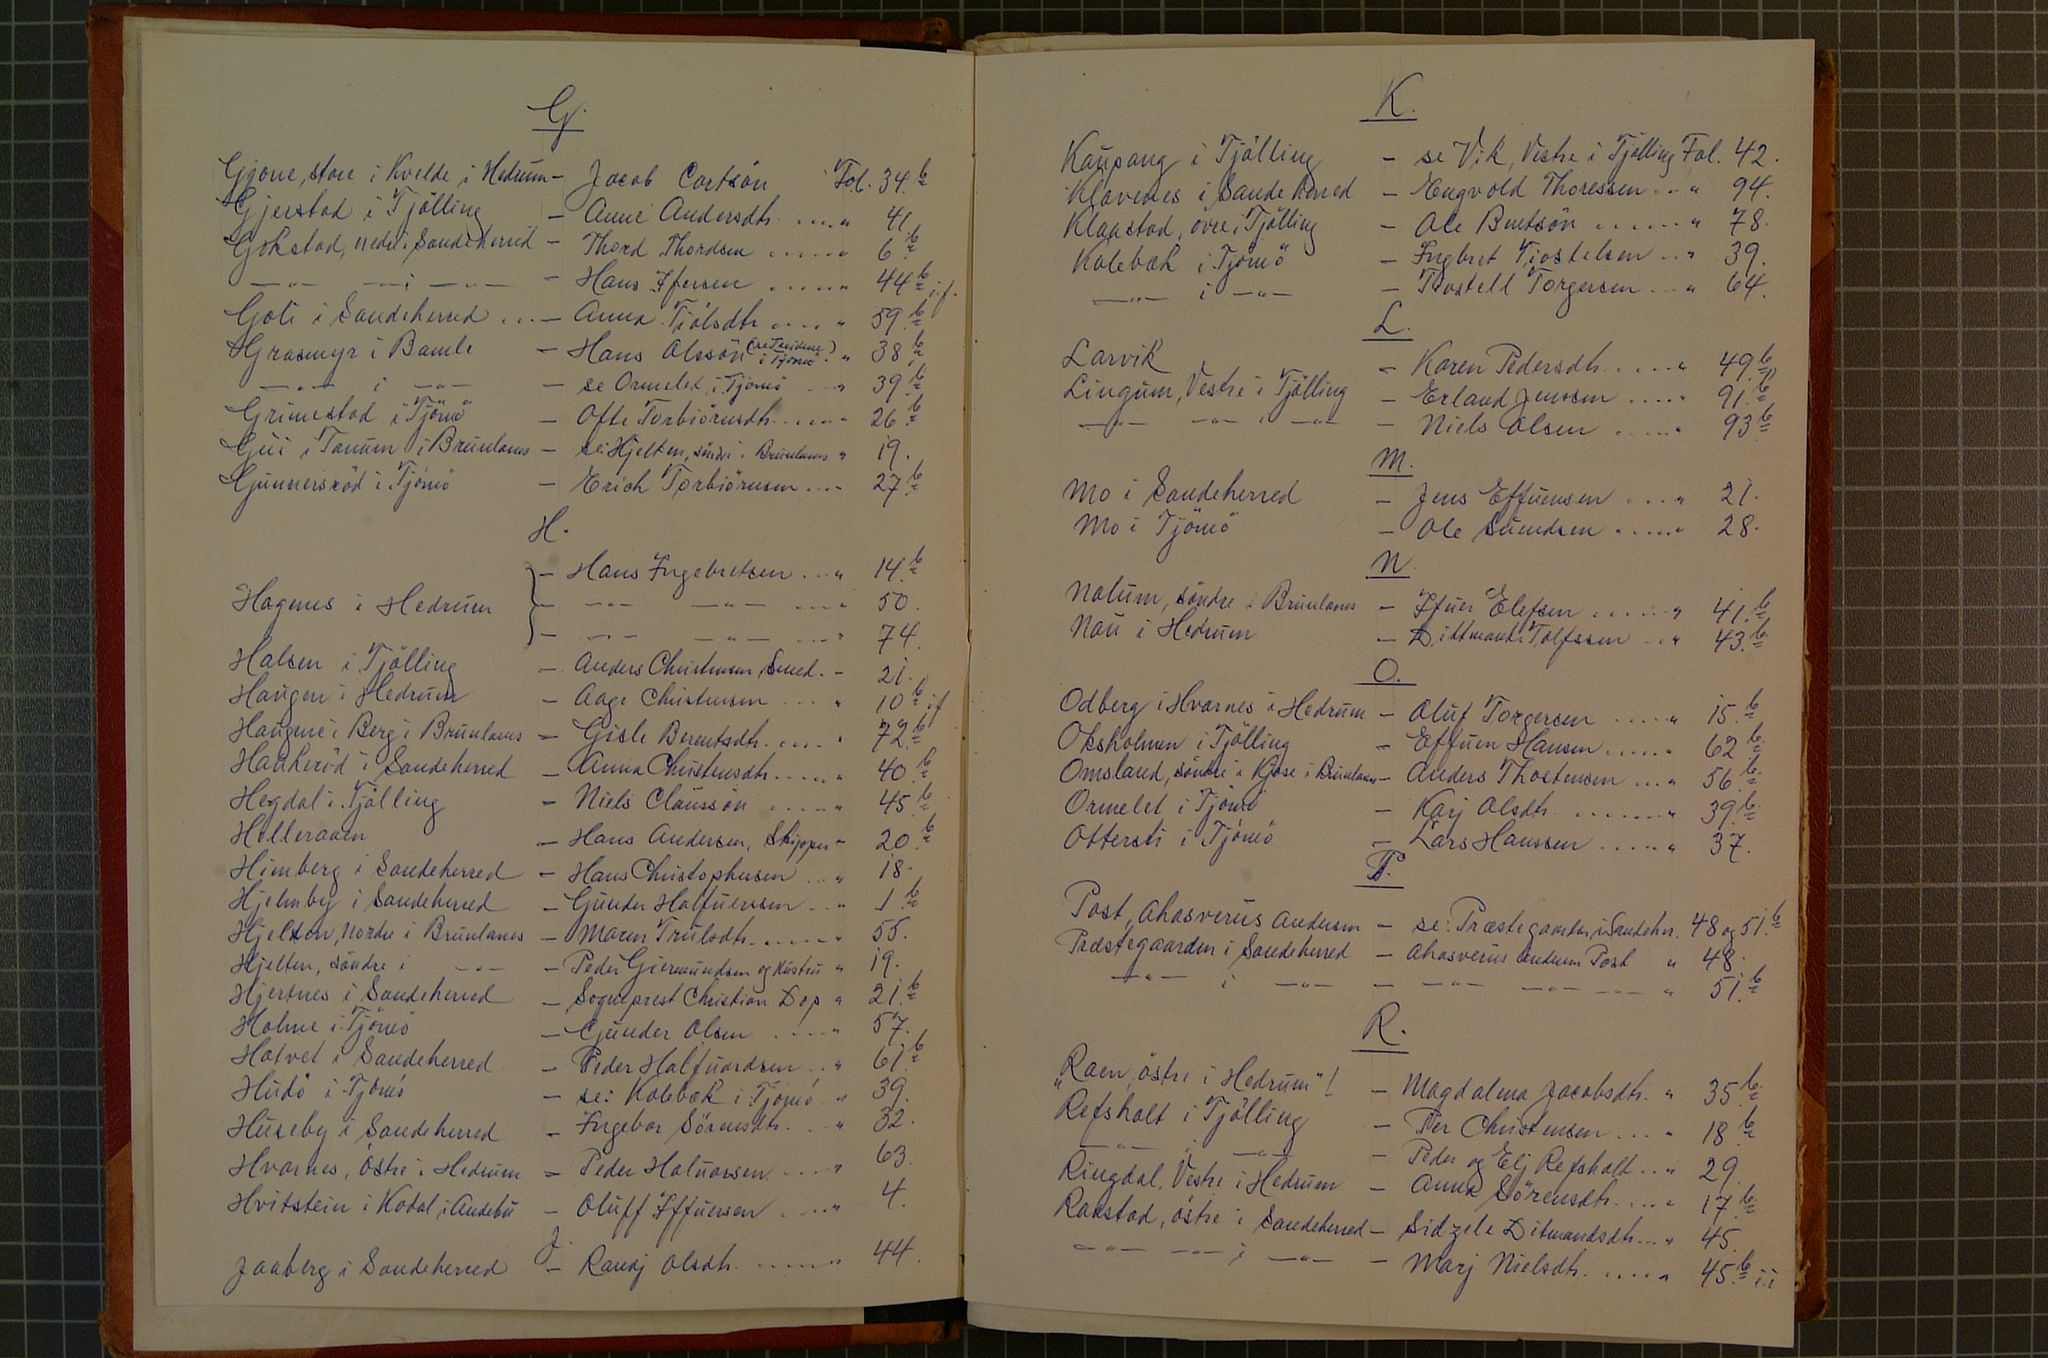 G.
Gjone, store i Kvelde i Hedrum - Jacob Cortsön Fol. 34.b
Gjerstad i Tjölling - Anne Andersdtr. .... " 41
Gokstad, nedre i Sandeherred - Thord Thordsen ..... " 6.b
—"— —i —"— - Hans Ifersen ..... " 44b i.f.
Goli i Sandeherred ... - Anna Tiölsdtr .... " 59.b
Grasmyr i Bamle - Hans Olssön i Tjömö " 38b
—"— i —"— - se Ormelet i Tjömö ... " 39.b
Grimestad i Tjömö - Ofte Torbiörnsdtr. ..... " 26b
Gui i Tanum i Brunlanes - se: Hjelten, söndre i Brunlanes " 19.
Gunnersröd i Tjömö - Erich Torbiörnsen .... " 27b
H.
- Hans Ingebretsen ... " 14.b
Hagnes i Hedrum - —"— —"— ... " 50.
- —"— —"— ... " 74.
Halsen i Tjölling - Anders Christensen, Smed. - 21.
Haugen i Hedrum - Aage Christensen ... " 10b i.f
Haugene i Berg i Brunlanes - Gisle Berentsdtr. .... " 72.b
Haukeröd i Sandeherred - Anna Christensdtr. ..... " 40.b
Hegdal i Tjölling - Niels Claussön ..... " 45.b
Helleraaen - Hans Andersen, Skipper " 20.b
Himberg i Sandeherred - Hans Christophersen ... " 18.
Hjelmby i Sandeherred - Gunder Halfuersen ... " 1.b
Hjelten, nordre i Brunlanes - Maren Trulsdtr. ..... " 55.
Hjelten, söndre i —"— - Peder Giermundsen og Hustru " 19.
Hjertnes i Sandeherred - Sogneprest Christian Dop " 21.b
Holme i Tjömö - Gunder Olsen .... " 57.
Hotvet i Sandeherred - Peder Halfuordsen ... " 61.b
Hudö i Tjömö - se: Kolebæk i Tjömö " 39.
Huseby i Sandeherred - Ingebor Sörensdtr. ... " 32.
Hvarnes, östre i Hedrum - Peder Haluorsen .... " 63.
Hvitstein i Kodal i Andebu - Oluff Iffuersen .... " 4.
J.
Jaaberg i Sandeherred - Randj Olsdtr. ...... " 44.
K.
Kaupang i Tjölling - se Vik, Vestre i Tjölling Fol. 42.
Klavenes i Sandeherred - Engvold Thoressen ... " 94.
Klaastad, övre i Tjölling - Ole Bentsön ...... " 78.
Kolebæk i Tjömö - Ingbret Tiostelsen ... " 39.
—"— i —"— - Tiostell Torgersen ... " 64.
L.
Larvik - Karen Pedersdtr. ..... " 49.b
Lingum, Vestre i Tjölling - Erland Jenssen ..... " 91.b
—"— —"— i —"— - Niels Olsen ..... " 93b
M.
Mo i Sandeherred - Jens Effuensen .... " 21.
Mo i Tjömö - Ole Suendsen ..... " 28.
N.
Nalum, söndre i Brunlanes - Ifuer Elefsen ...... " 41.b
Nau i Hedrum - Dittmand Tolfssen ... " 43.b
O.
Odberg i Hvarnes i Hedrum - Oluf Torgersen ..... " 15.b
Oksholmen i Tjölling - Effuen Hansen ...... " 62b
Omsland, söndre i Kjose i Brunlanes - Anders Thostensen ... " 56b
Ormelet i Tjömö - Karj Olsdtr. ....... " 39.b
Otterstı i Tjömö - Lars Hanssen ..... " 37.
P.
Post, Ahasverus Andersen - se: Præstegaarden i Sandehr. 48 og 51.b
Præstegaarden i Sandeherred - Ahasverus Andersen Post " 48.
—"— i —"— - —"— —"— —"— " 51.b
R.
"Raen, östre i Hedrum"! - Magdalena Jacobsdtr. " 35.b
Refsholt i Tjölling - Per Christensen .... " 18b
—"— i —"— - Peder og Elj Refsholt ... " 29.
Ringdal, Vestre i Hedrum - Anna Sörensdtr. .... " 17.b
Raastad, östre i Sandeherred - Sidzele Ditmandsdtr... " 45.
—"— —"— i —"— - Marj Nielsdtr. ..... " 45.b i.i